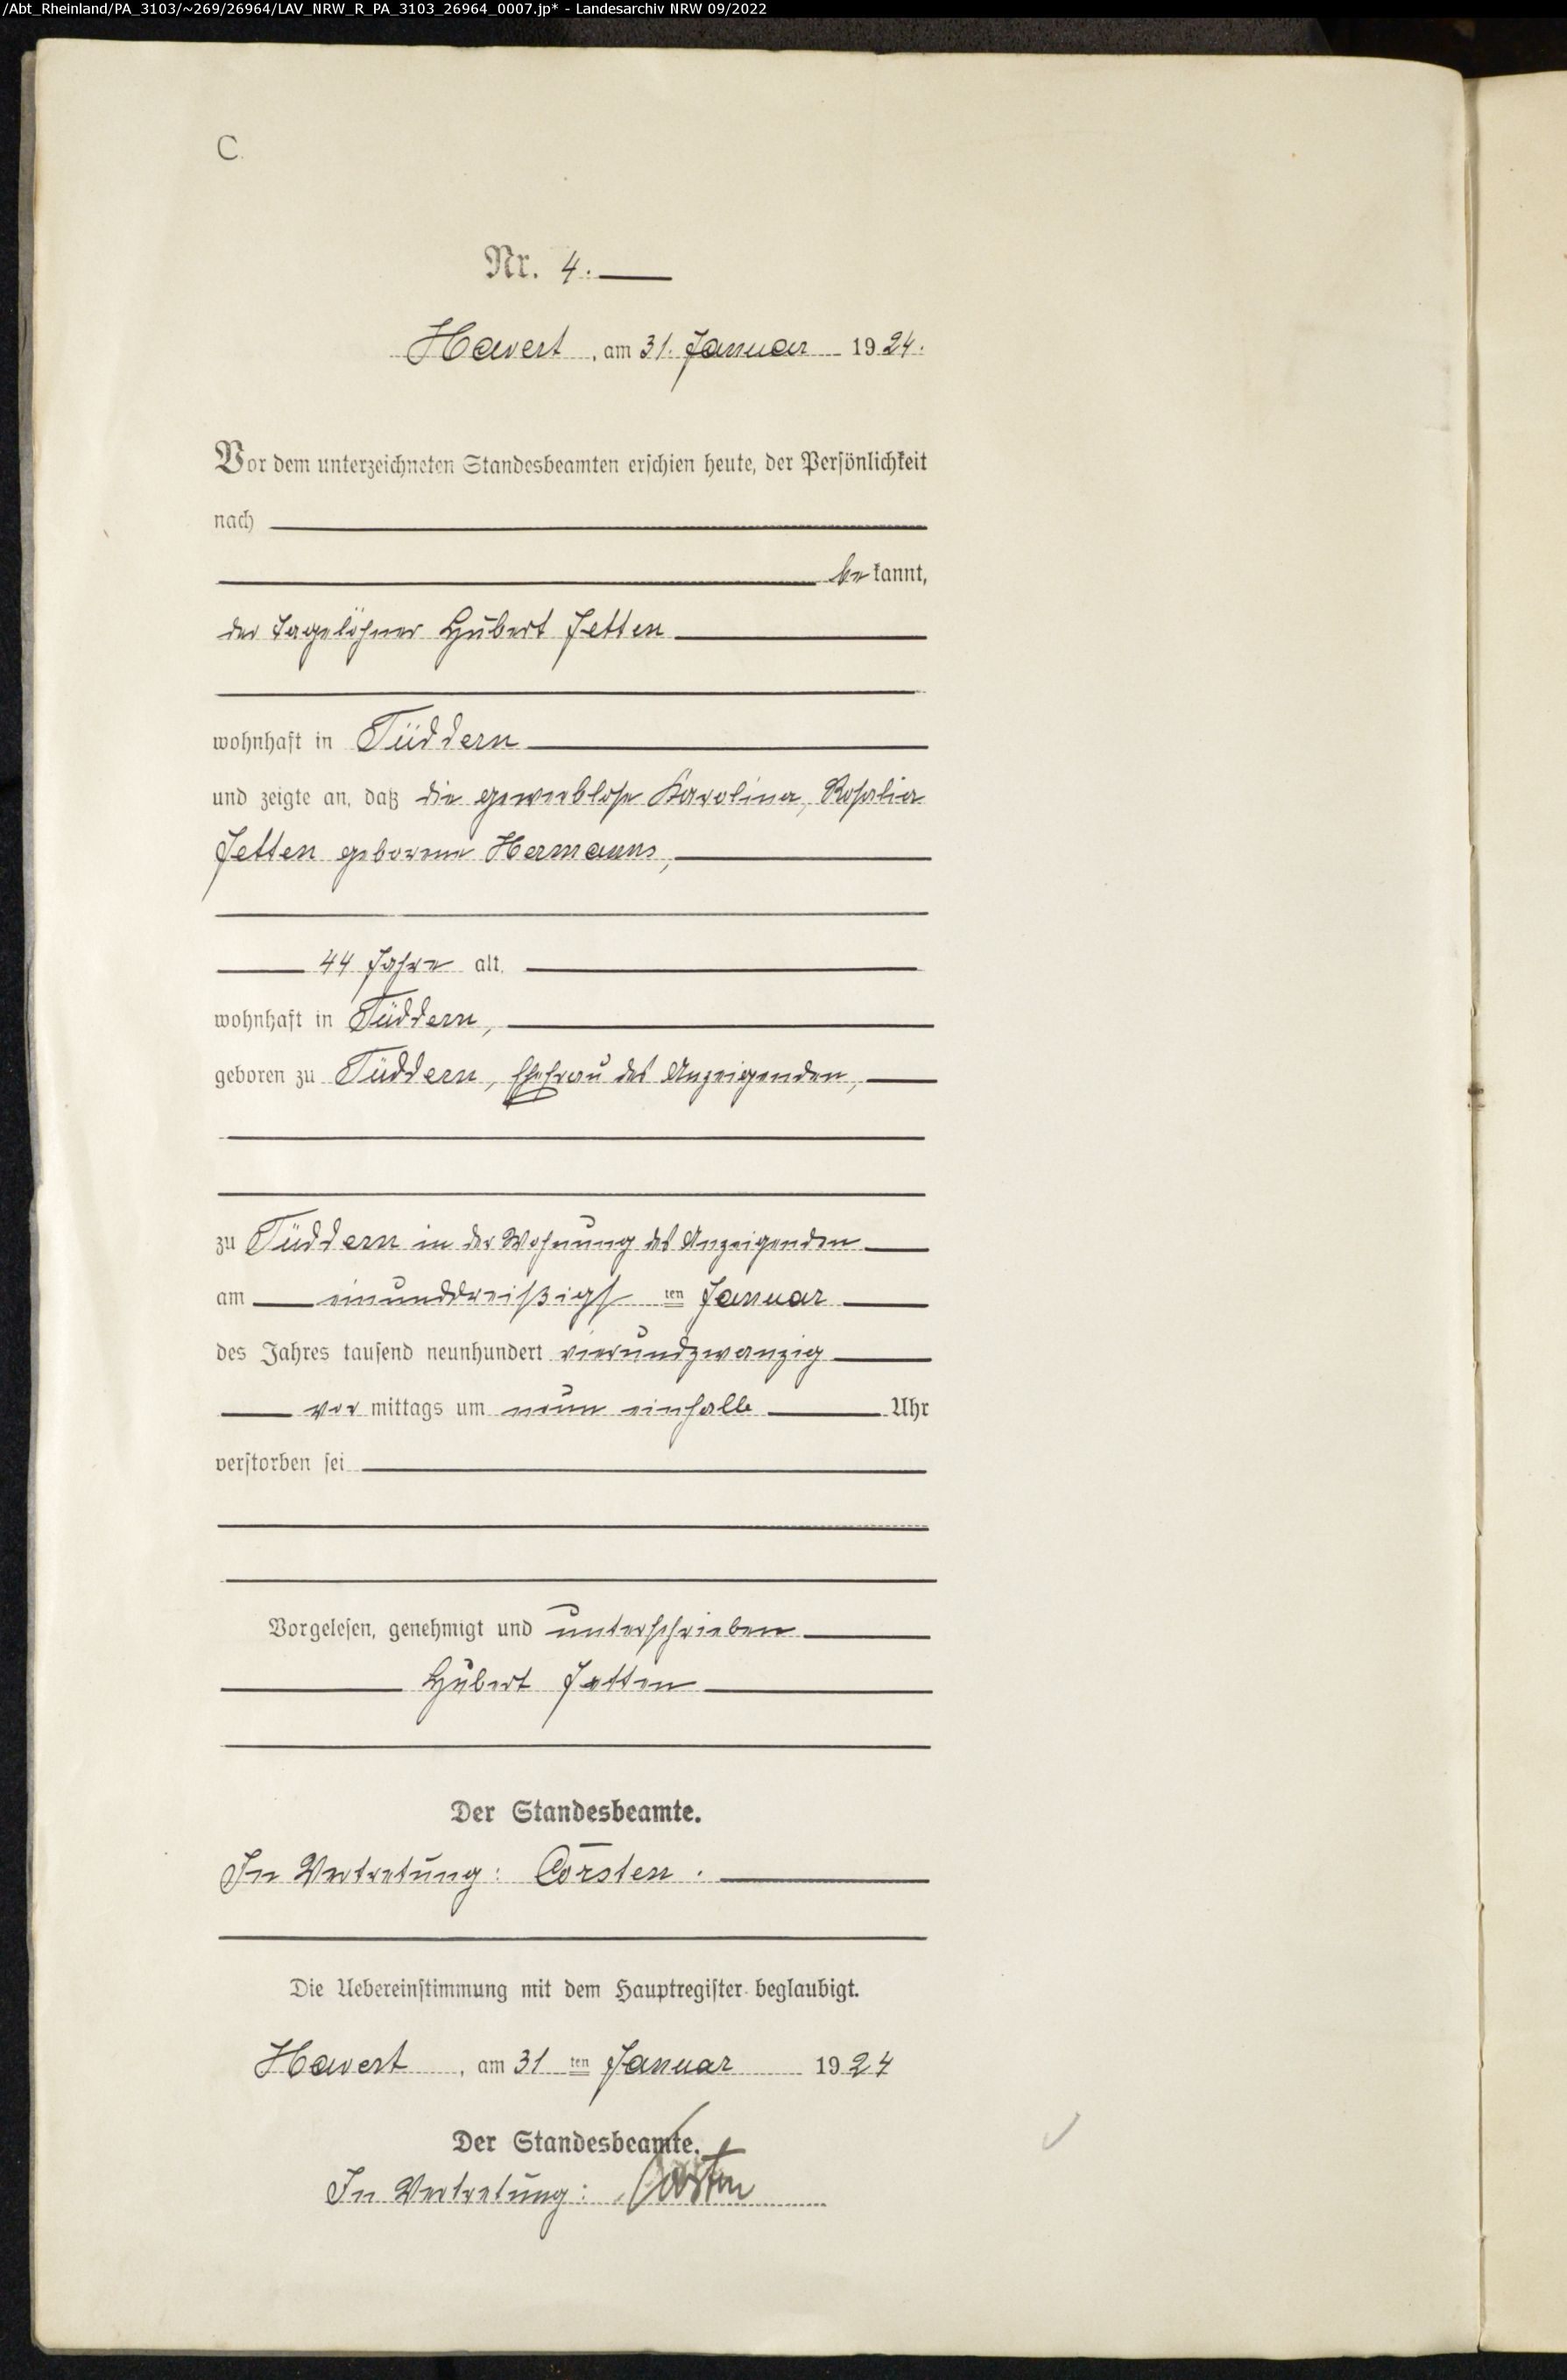 /Abt_Rheinland/PA_3103/~269/26964/LAV_NRW_R_PA_3103_26964_0007.jp* - Landesarchiv NRW 09/2022
C.
Nr. 4.
Havert, am 31. Januar 1924.
Vor dem unterzeichneten Standesbeamten erschien heute, der Persönlichkeit
nach
bekannt,
der Tagelöhner Hubert Jetten
wohnhaft in Tüddern
und zeigte an, daß die gewerblose Karolina, Rosalia
Jetten geborene Hermanns,
44 Jahre alt,
wohnhaft in Tüddern,
geboren zu Tüddern, Ehefrau des Anzeigenden,
zu Tüddern in der Wohnung des Anzeigenden
am einunddreißigsten Januar
des Jahres tausend neunhundert vierundzwanzig
vormittags um neun einhalb Uhr
verstorben sei
Vorgelesen, genehmigt und unterschrieben
Hubert Jetten
Der Standesbeamte.
In Vertretung: Corsten.
Die Uebereinstimmung mit dem Hauptregister beglaubigt.
Havert, am 31ten Januar 1924
Der Standesbeamte.
In Vertretung: Corsten